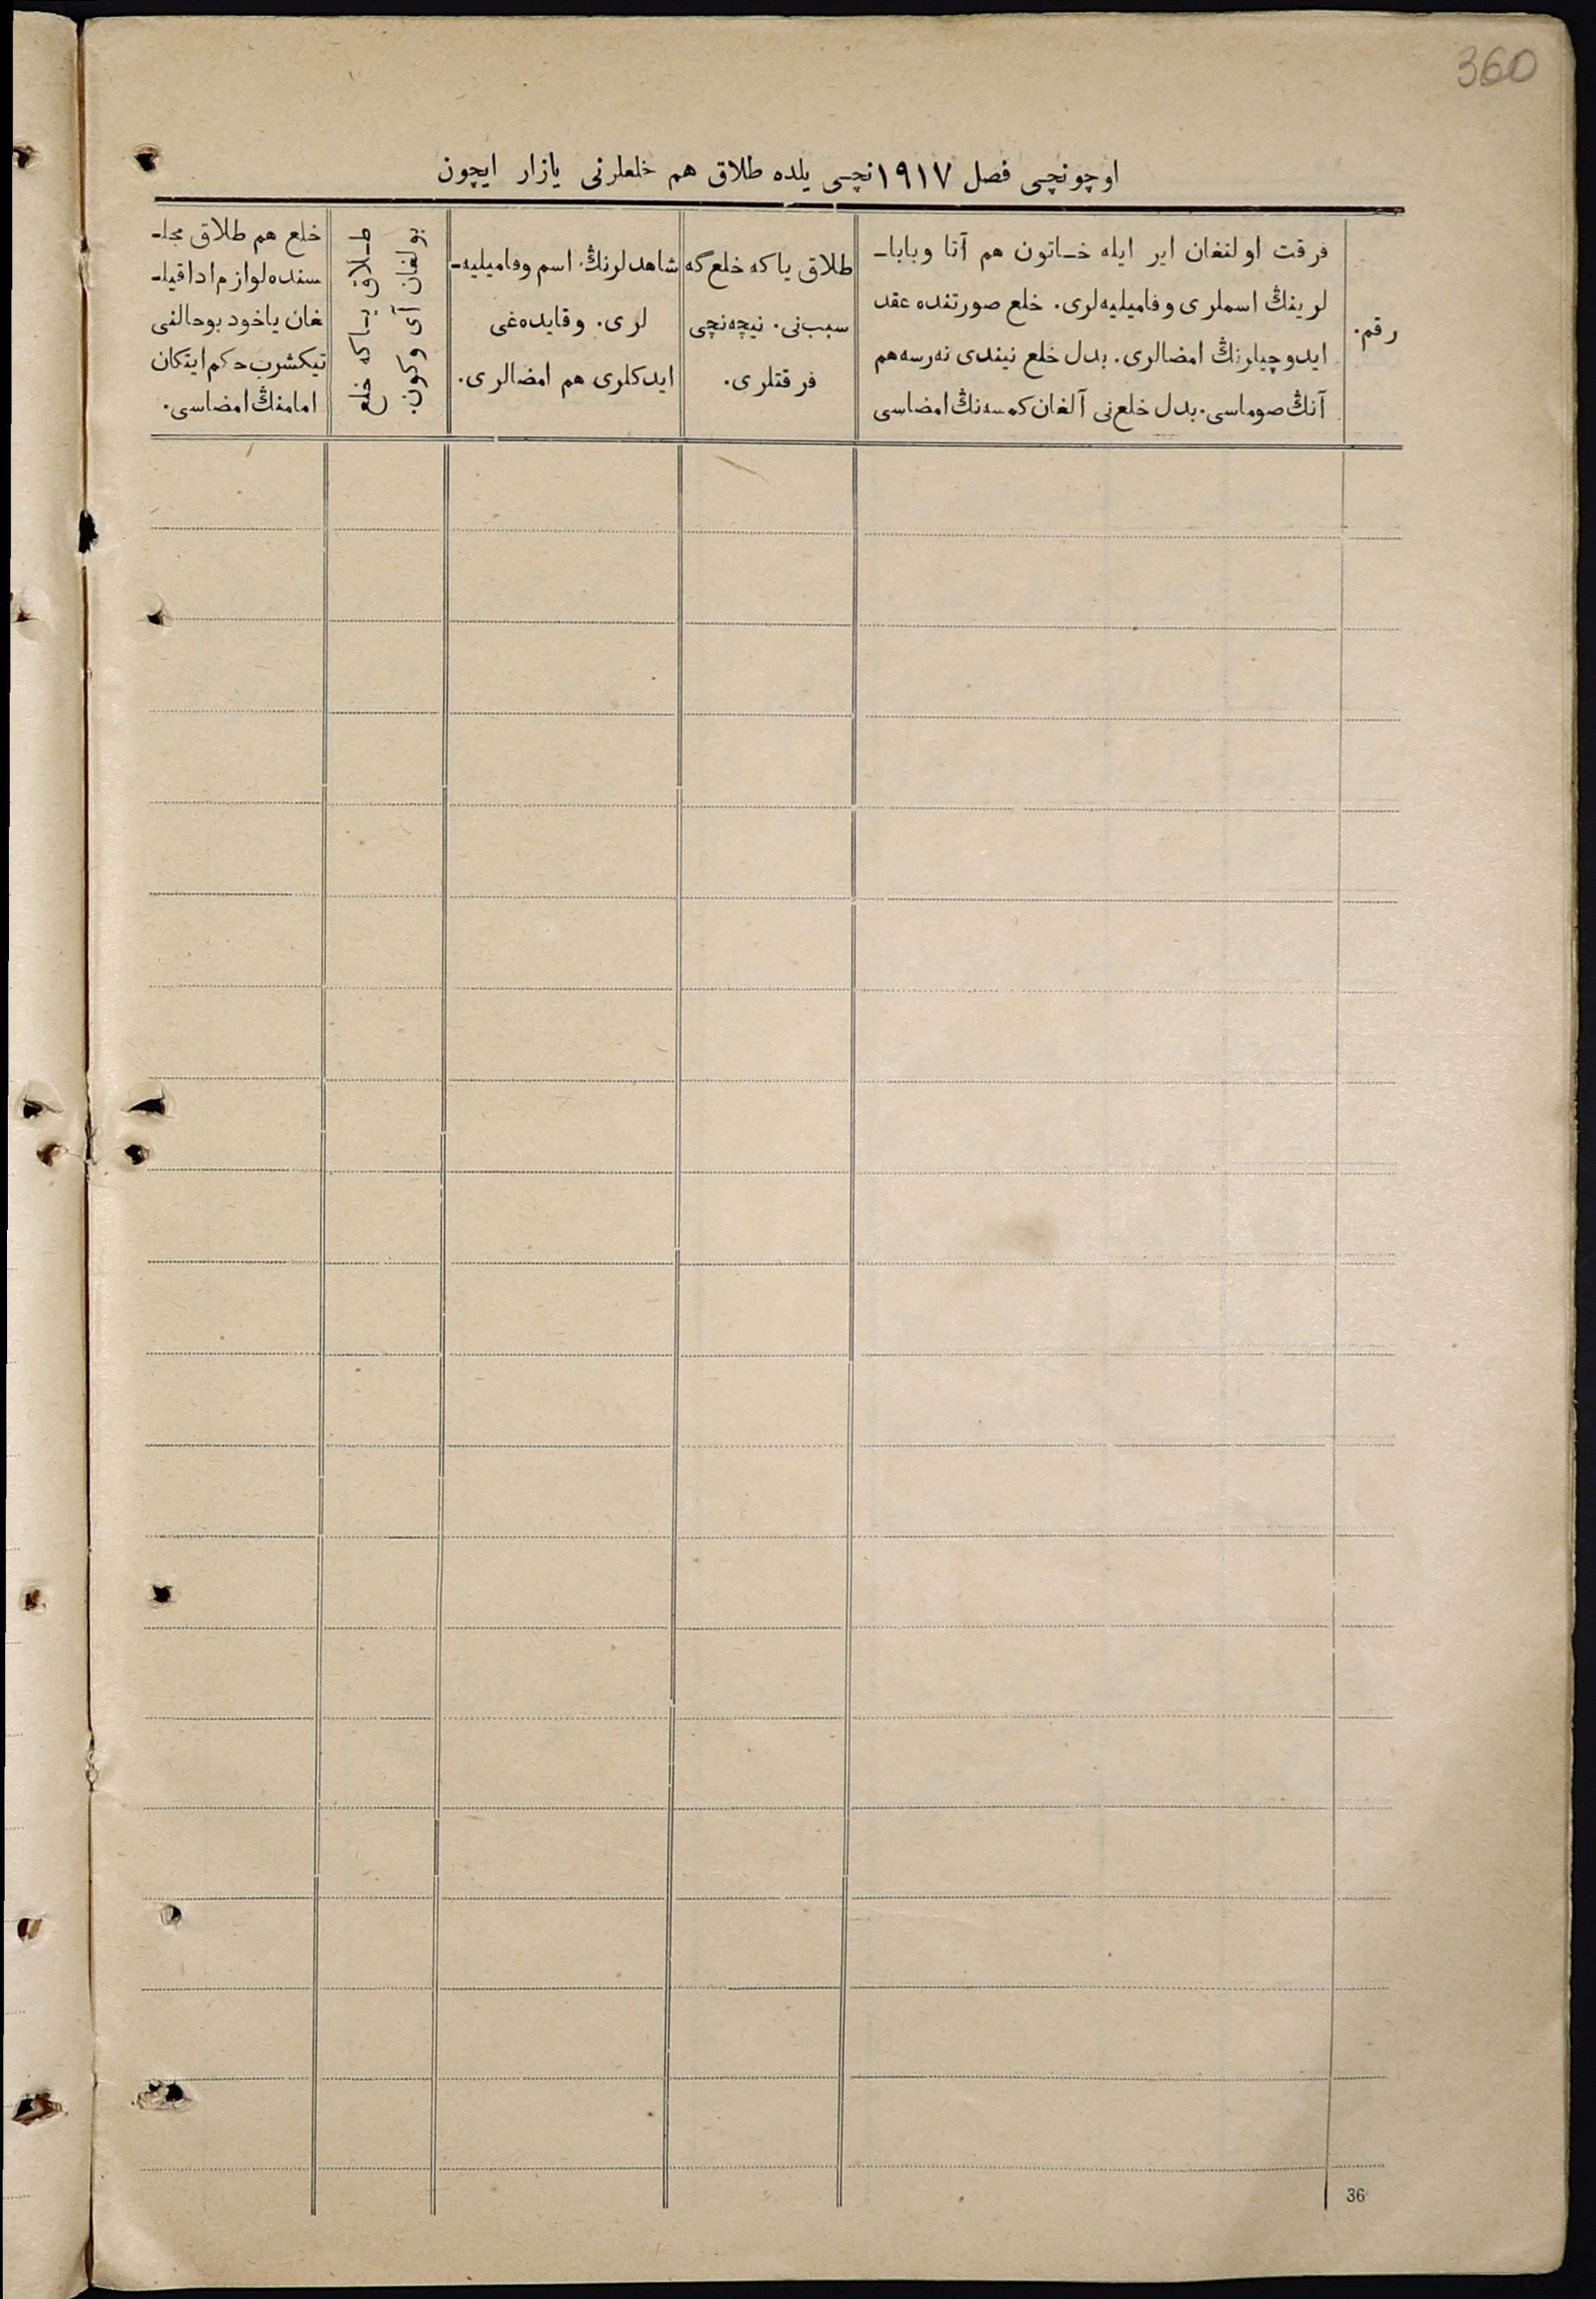 360
اوچونچی فصل ١٩١٧نچی یلده طلاق هم خلعلرنی یازار ایچون
رقم.
فرقت اولنغان ایر ایله خاتون هم آتا وبابا-
لرینڭ اسملری وفامیلیه‌لری. خلع صورتنده عقد
ایدوچیلرنڭ امضالری. بدل خلع نیندی نه‌رسه‌هم
آنڭ صوماسی. بدل خلع‌نی آلغان کمسه‌نڭ امضاسی
طلاق یاکه خلع‌گه
سبب‌نی. نیچه‌نچی
فرقتلری.
شاهدلرنڭ اسم وفامیلیه-
لری. وقایده‌غی
ایدکلری هم امضالری.
طلاق یاکه خلع
بولغان آی وکون.
خلع هم طلاق مجلـ
سنده‌لوازم اداقیلـ
غان یاخود بوحالنی
تیکشرب حکم‌ایتکان
امامنڭ امضاسی.
36